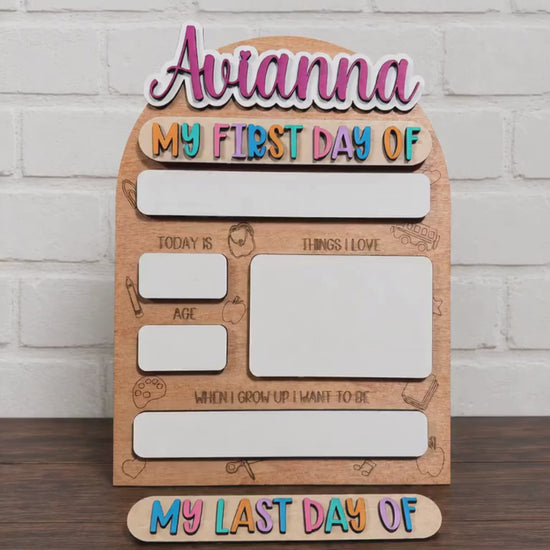 Avianna
MY FIRST DAY OF
TODAY IS
THINGS I LOVE
AGE
WHEN I GROW UP I WANT TO BE
MY LAST DAY OF